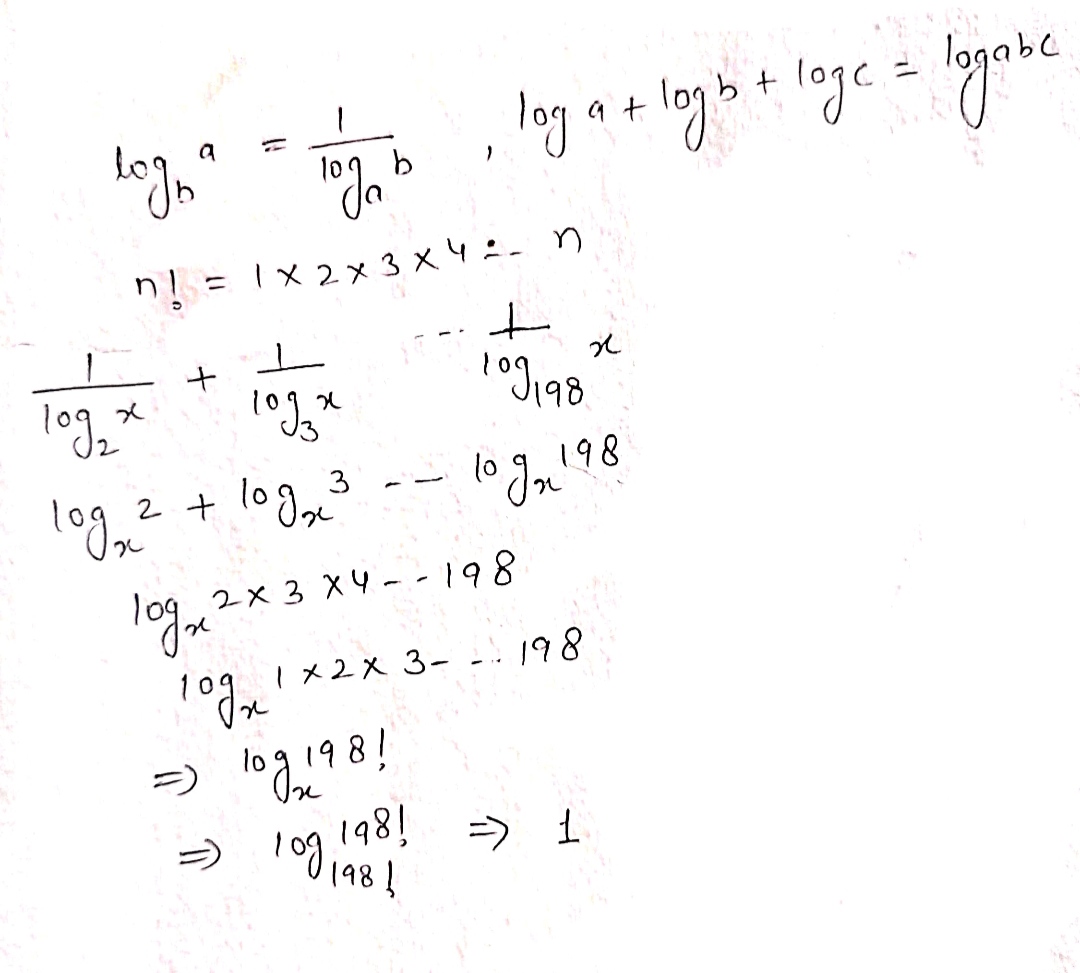 log_b a = 1/log_a b , log a + log b + log c = log abc
n! = 1 × 2 × 3 × 4 -- n
1/log_2 x + 1/log_3 x --- 1/log_198 x
log_x 2 + log_x 3 -- log_x 198
log_x 2 × 3 × 4 -- 198
log_x 1 × 2 × 3 - --- 198
⇒ log_x 198!
⇒ log_198! 198! ⇒ 1